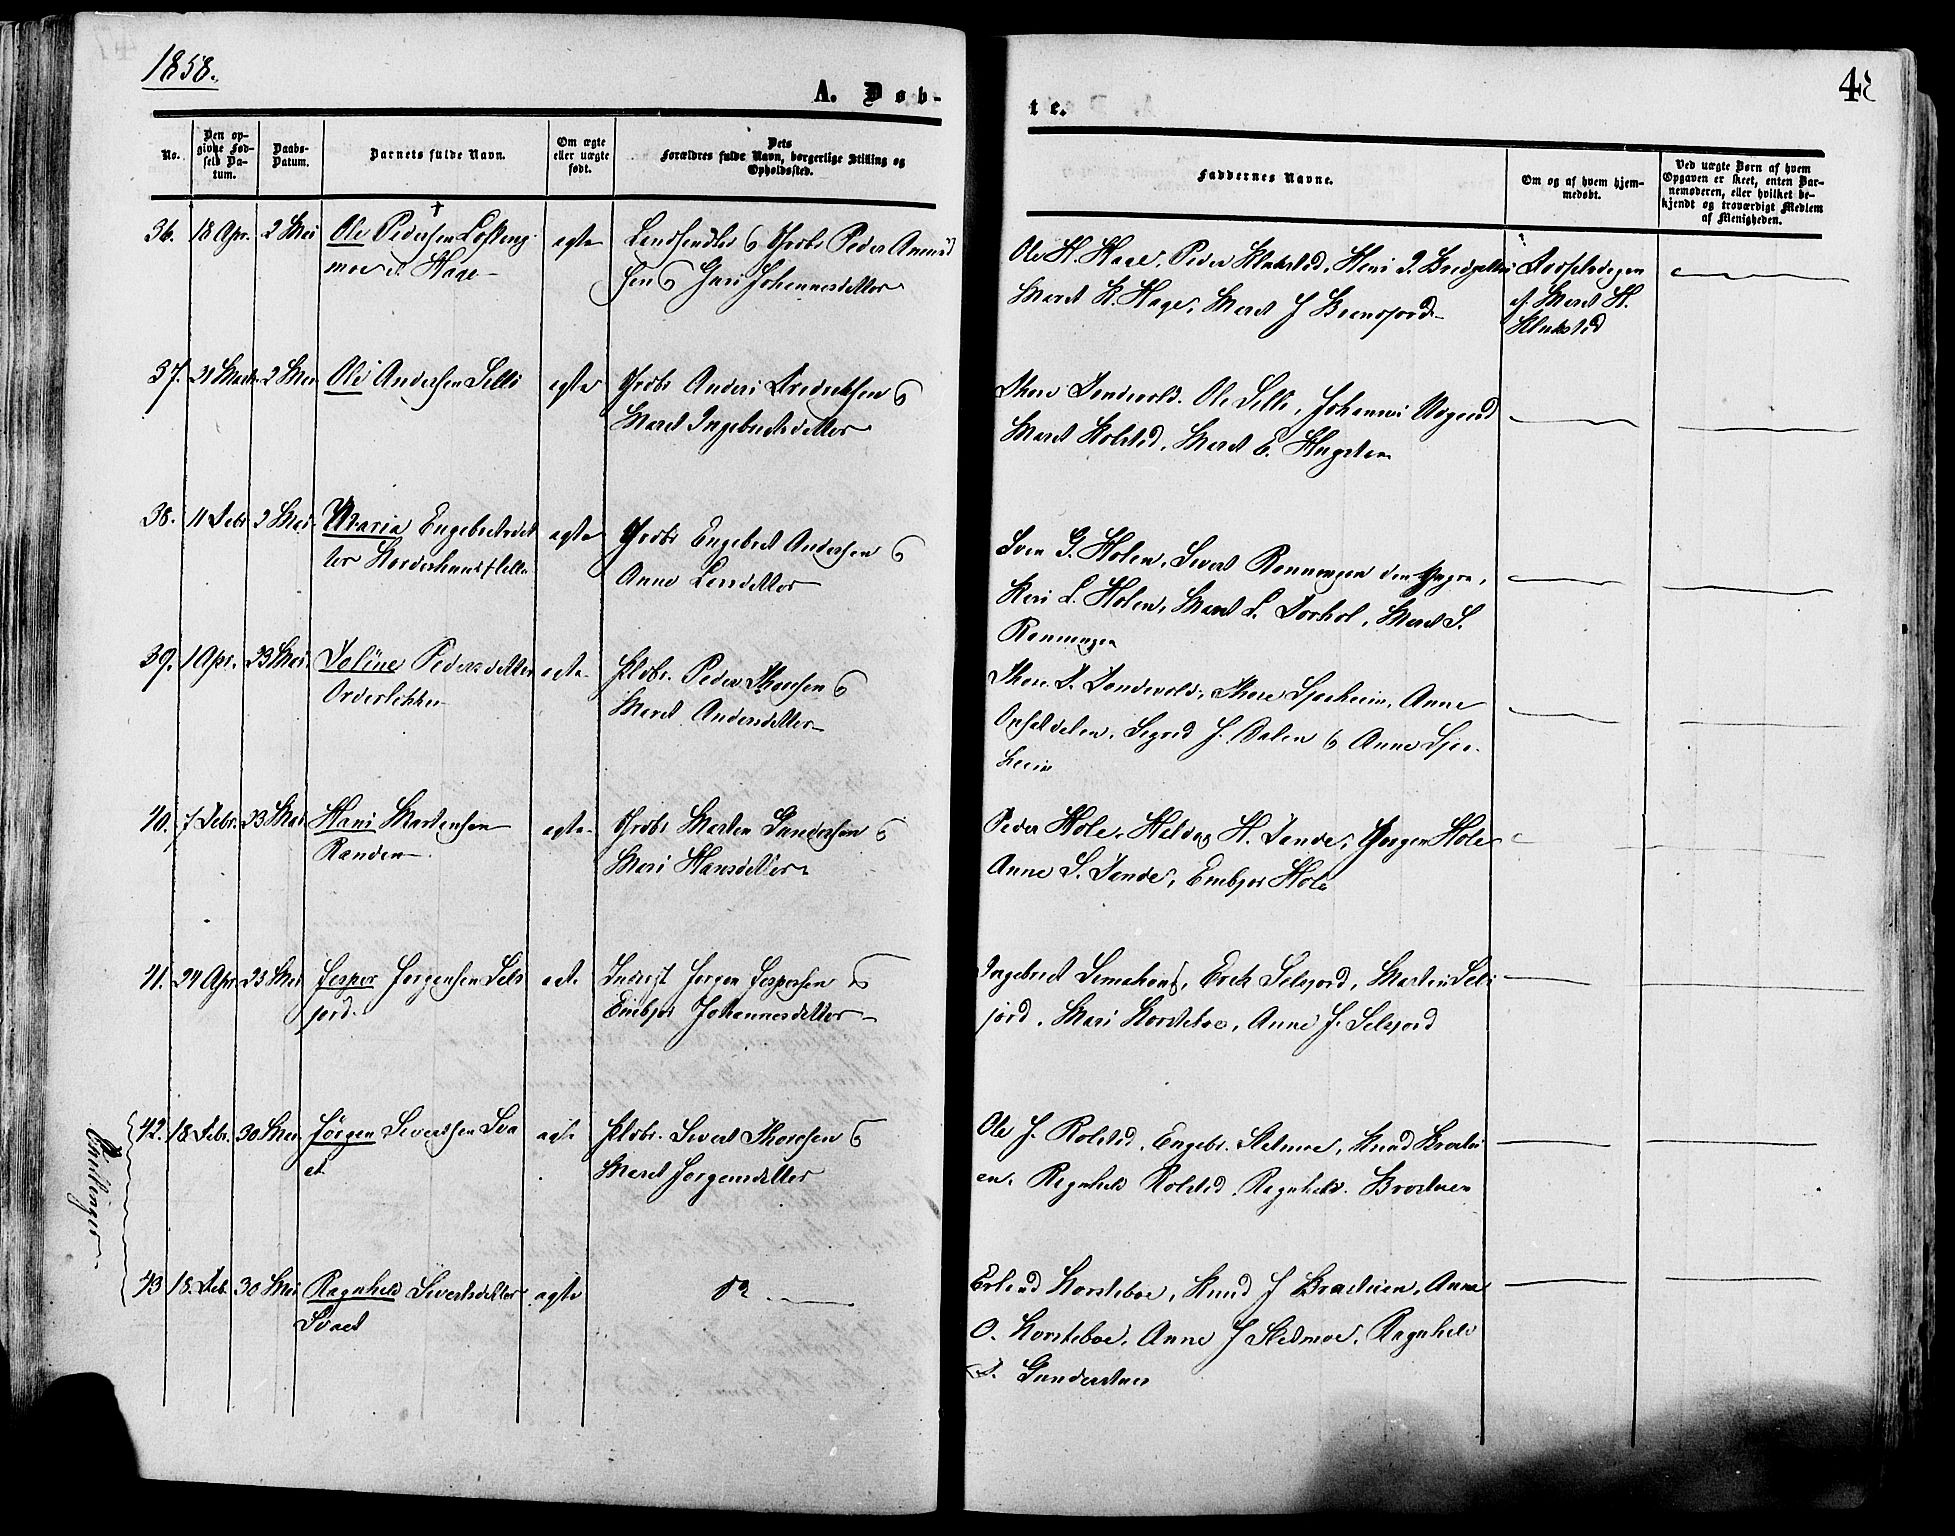 1858.
A. Døb-
te.
48
No.
Den op-
givne Fød-
sels Da-
tum.
Daabs-
Datum.
Barnets fulde Navn.
Om ægte
eller uægte
født.
Dets
Forældres fulde Navn, borgerlige Stilling og
Opholdssted.
Faddernes Navne.
Om og af hvem hjem-
medøbt.
Ved uægte Børn af hvem
Opgaven er skeet, enten Bar-
nemoderen, eller hvilket be-
kjendt og troværdigt Medlem
af Menigheden.
36. 18 Apr. 2 Mai Ole Pedersen Lofteng
moe v. Hage
ægte
Peder Amund
sen & Guri Johannesdatter
Ole H. Hage, Peder Klukstad,
Maret K. Hage, Maret J
Fødselsdagen
af Maret H.
Klukstad
37. 21 Marts 2 Mai Ole Andersen Selle ægte Grdbr Anders Fredriksen &
Maret Ingebretsdatter
Thore Tondevold. Ole Selle, Johannes
Maret Kolstad, Maret E. Haugstuen
38. 11 Febr 2 Mai Maria Engebretsdat
ter
ægte Grdbr Engebret Andersen &
Anne Larsdatter
Sven G. Holen, Sivert Rønningen den yngre,
Kari L. Holen, Maret L. Torhol, Maret S.
Rønningen
39. 1 Apr. 23 Mai Joline Pedersdatter
Orderløkken
ægte Pldbr. Peder Thoresen &
Maret Andersdatter
Thore T. Tondevold, Thore Sparheim, Anne
Opsaldalen, Sigrid J. Dalen & Anne Spar-
heim
40. 7 Febr. 23 Mai Hans Martensen
Randen
ægte Grdbr Marten Gundersen &
Mari Hansdatter
Peder Hole, Haldor H. Tande, Jørgen Hole
Anne S. Tande, Embjør Hole
41. 24 Apr 23 Mai Jesper Jørgensen Sels
jord.
ægte Inderst Jørgen Jespersen &
Embjør Johannesdatter
Ingebret Semehous, Erek Selsjord, Marten Sels
jord. Mari Korsteboe, Anne J. Selsjord
Tvillinger
42. 18 Febr. 30 Mai Jørgen Sivertsen Sva
et
ægte Pldbr. Sivert Thoresen &
Maret Jørgensdatter
Ole J. Kolstad, Engebr. Stetmoe, Knud Brostu
en. Ragnhild Kolstad Ragnhild. Brostuen
43 18. Feb. 30 Mai Ragnhild Sivertsdatter
Svaet
ægte do
Erlend Korsteboe, Knud J Brostuen, Anne
O. Korsteboe, Anne J Stetmoe, Ragnhild
S. Gunderstuen